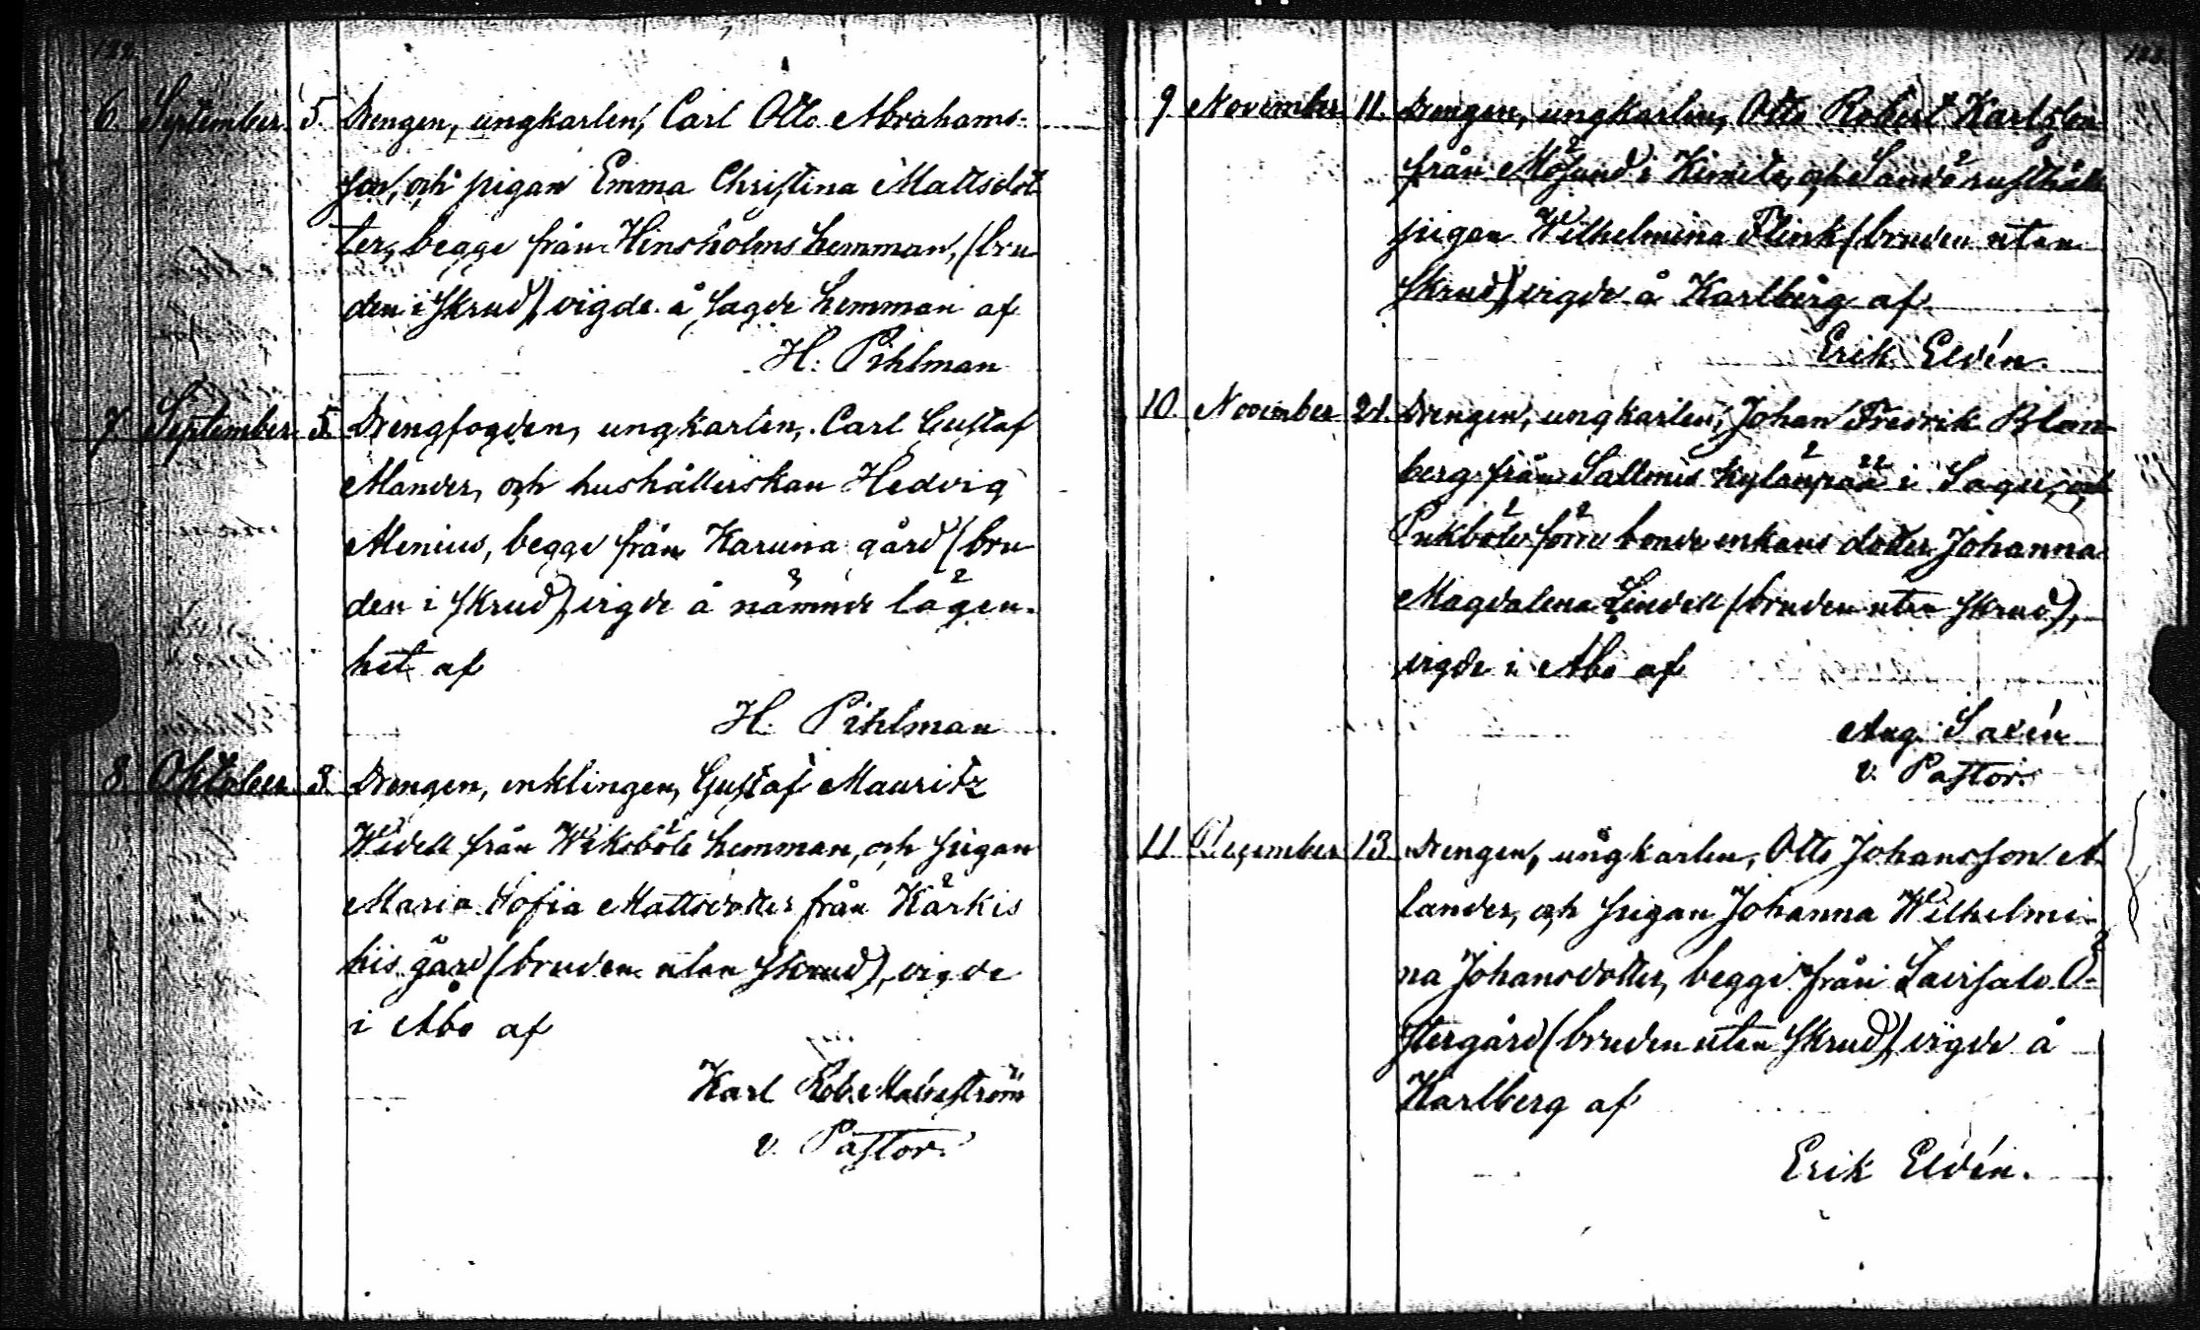 122.
6. September 5. Drengen, ungkarlen, Carl Otto Abrahams-
son, och pigan Emma Christina Mattsdot
ter, begge från Hinsholms hemman, (bru
den i skrud) vigde å sagde hemman af
H. Pihlman
7. September 5. Drengfogden, ungkarlen, Carl Gustaf
Mander, och hushållerskan Hedvig
Alenius, begge från Karuna gård (bru
den i skrud), vigde å nämnde lägen-
het af
H. Pihlman
8. Oktober 3. Drengen, enklingen, Gustaf Mauritz
Widell från Wiksböle hemman, och pigan
Maria Sofia Mattsdotter från Kärkis
bis gård (bruden utan skrud), vigde
i Åbo af
Karl Rob. Malmström
v. Pastor.
123.
9. November 11. Drengen, ungkarlen, Otto Robert Karlsson
från Mösund i Kimito, och Sandö rusthålls
pigan Wilhelmina Flink (bruden utan
skrud), vigde å Karlberg af
Erik Elvén.
10. November 21. Drengen, ungkarlen, Johan Fredrik Blom
berg från Salmis Kylänpää i Sagu, och
Pukböle förre bonde enkans dotter Johanna
Magdalena Lindell (bruden utan skrud),
vigde i Åbo af
Aug. Saxén
v. Pastor.
11. December 13. Drengen, ungkarlen, Otto Johansson A
lander, och pigan Johanna Wilhelmi-
na Johansdotter, begge från Sairsalo Ö-
stergård (bruden utan skrud), vigde å
Karlberg af
Erik Elvén.